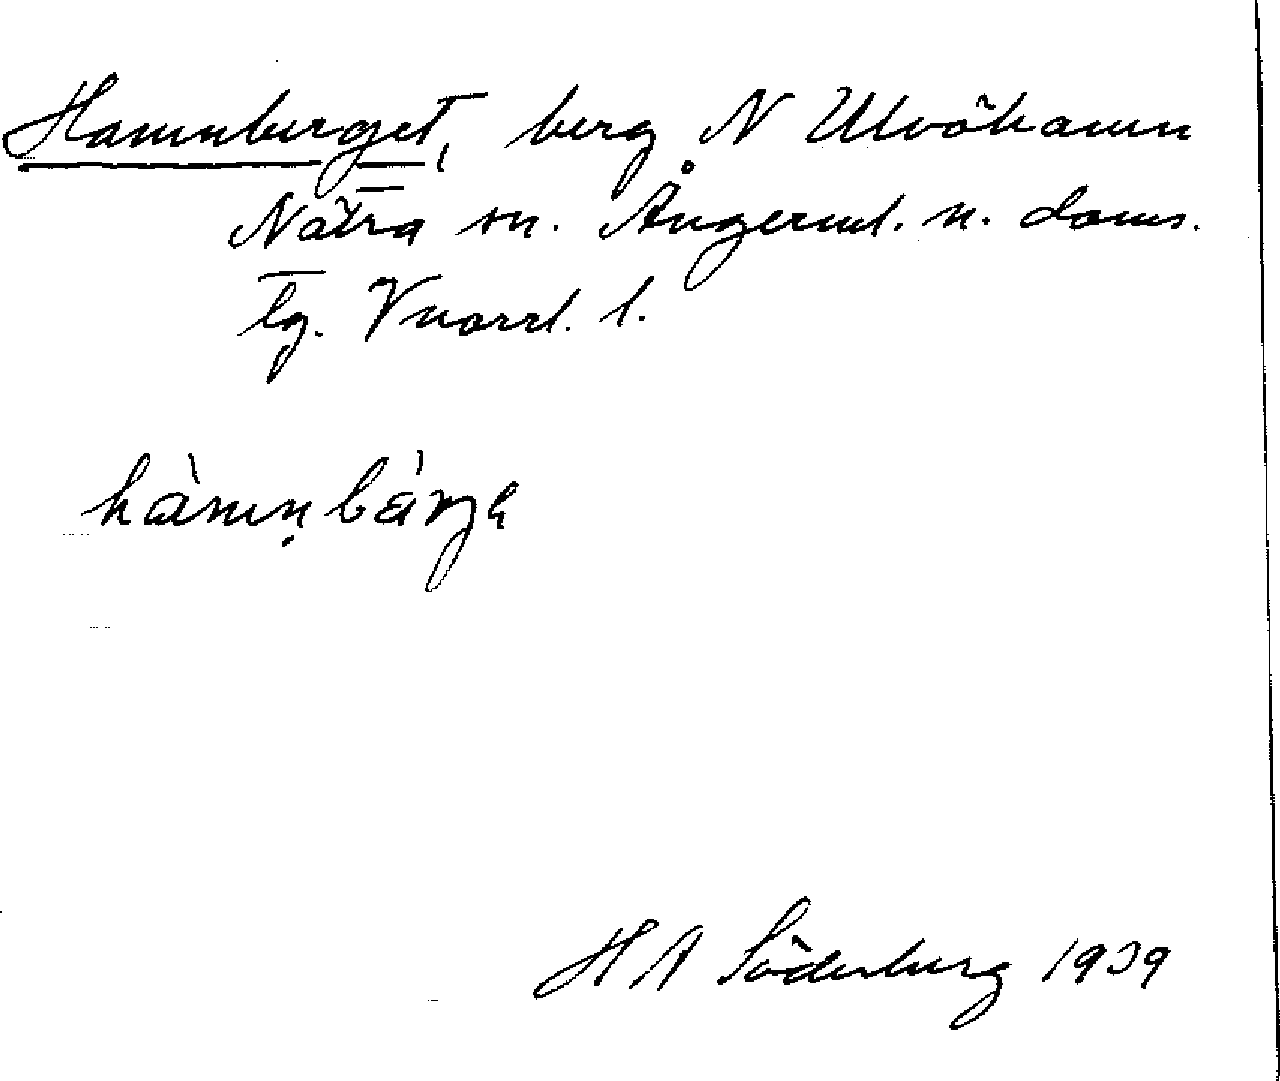 Hamnberget, berg N Ulvöhamn
Nätra sn. Ångerml. n. doms.
lg. Vnorrl. l.
hàmn̥bárjə
H A Söderberg 1939